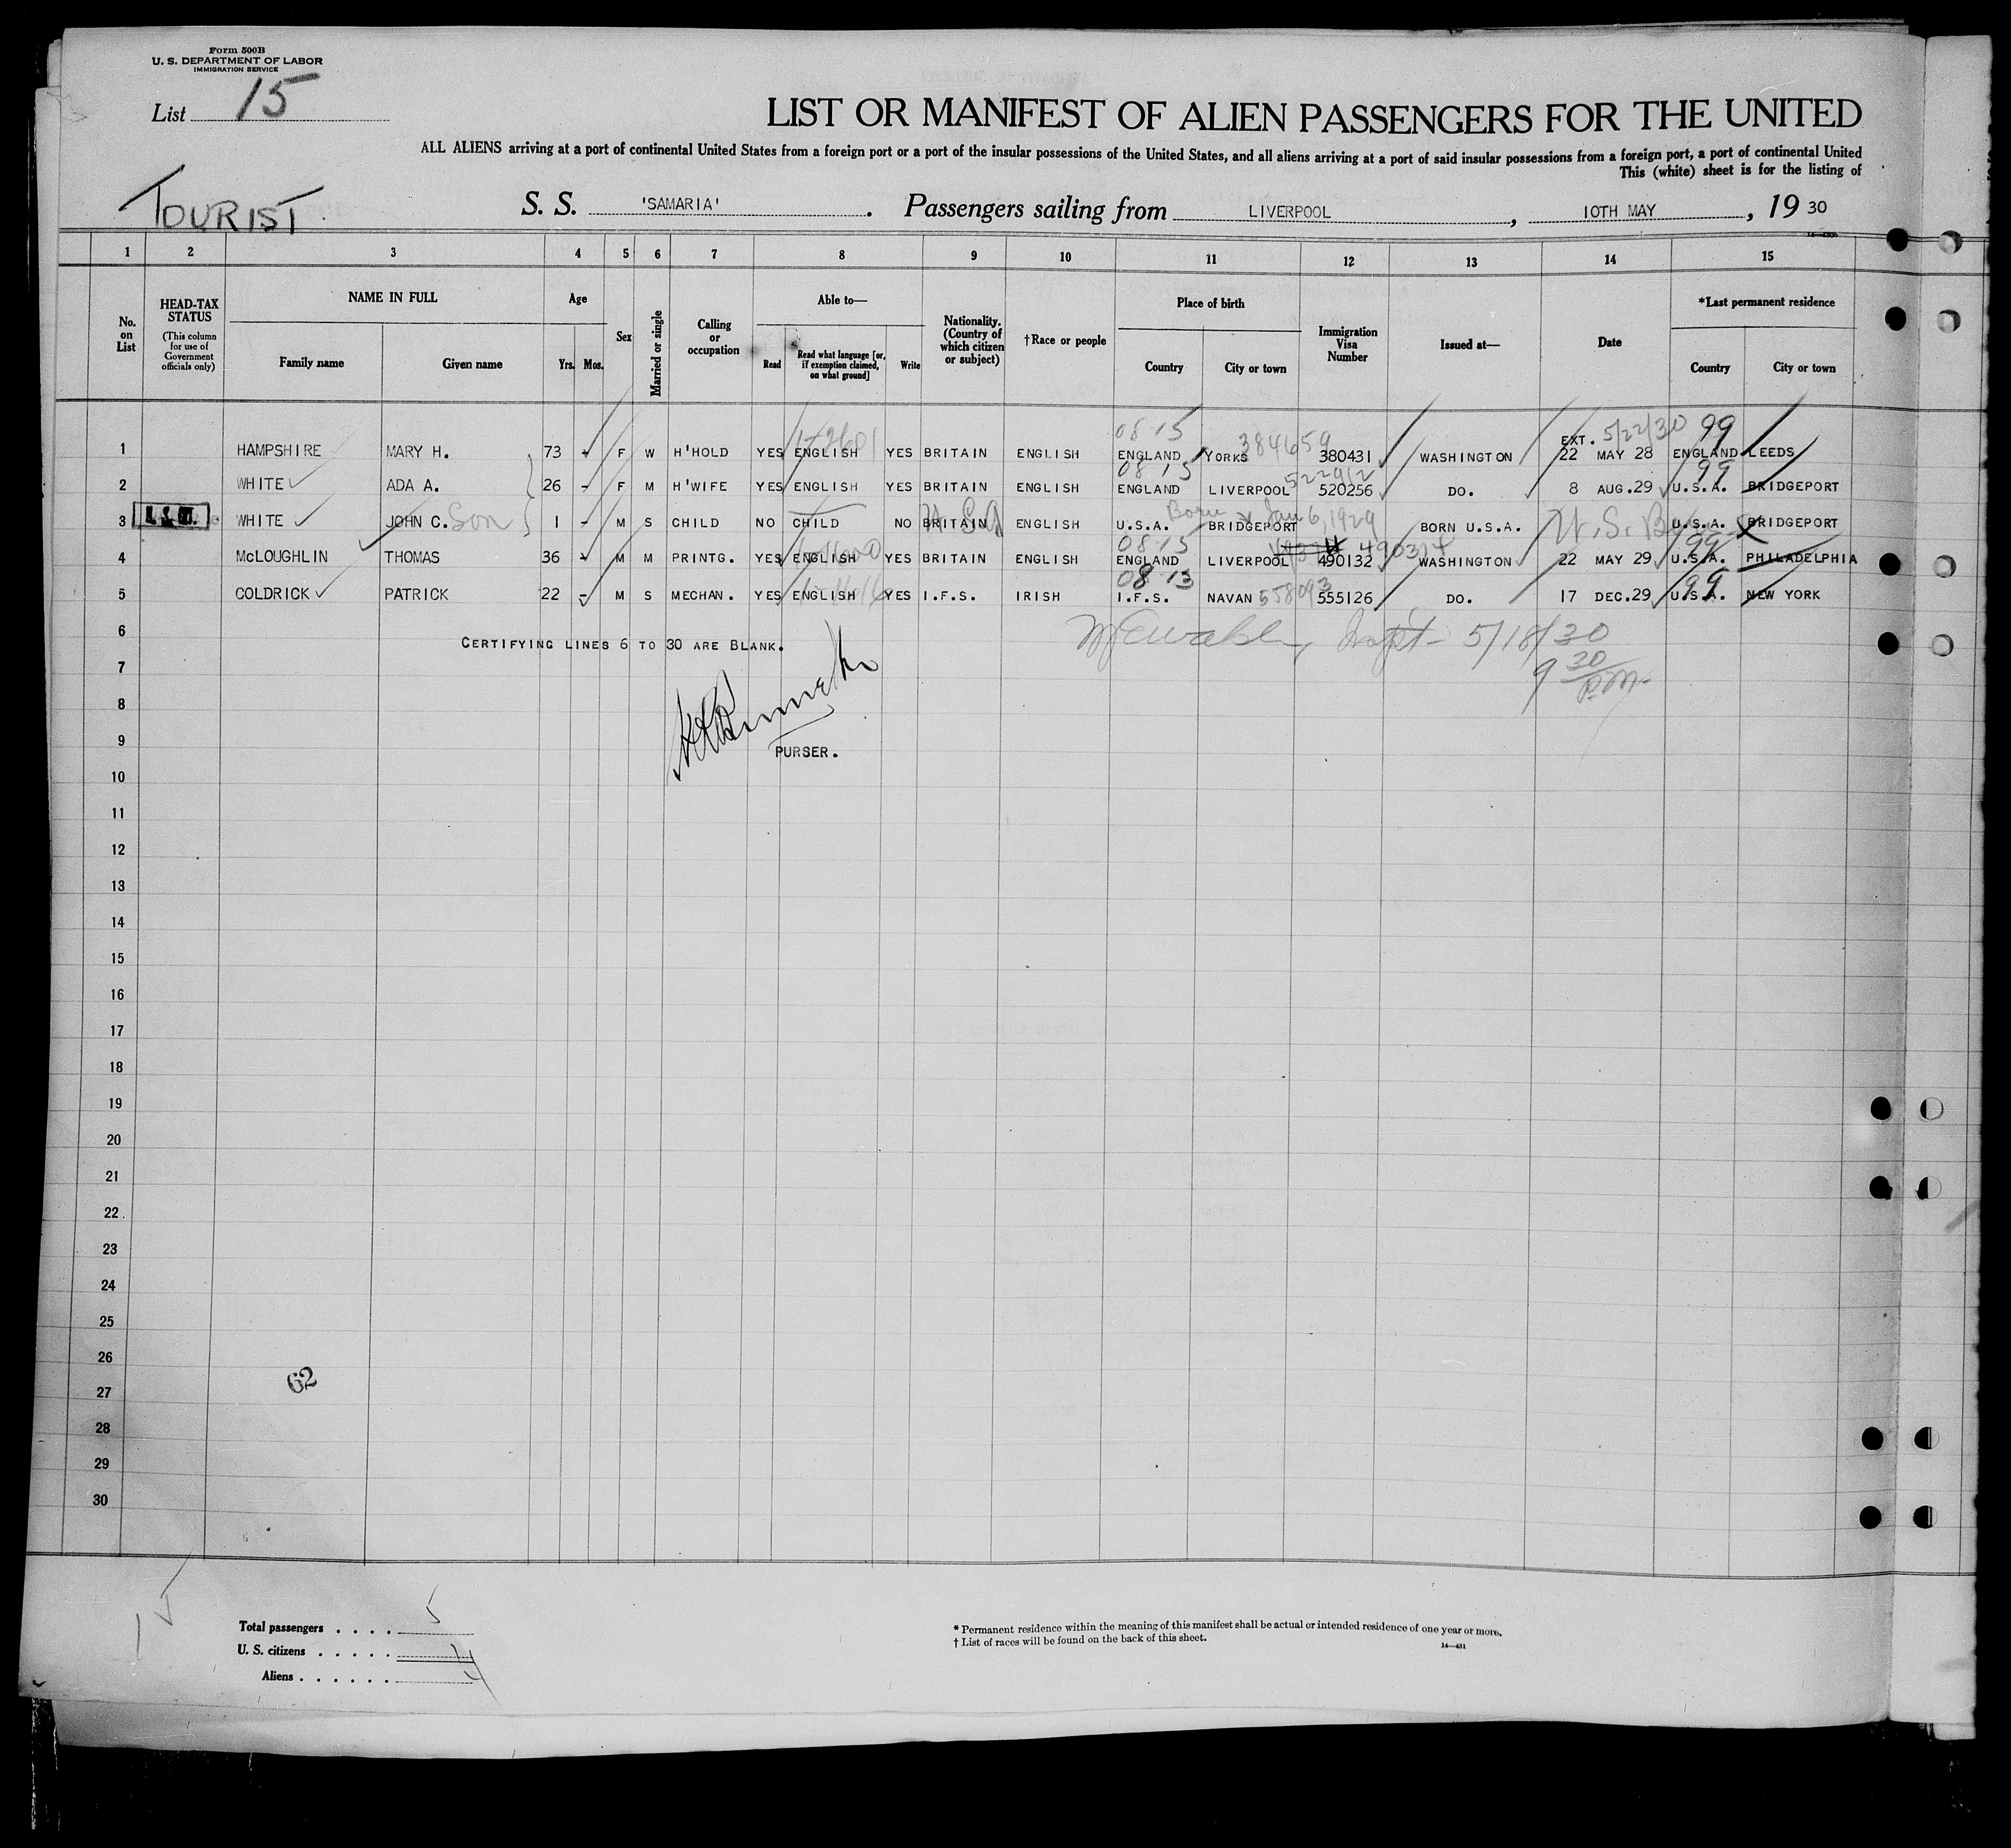 Form 500B
U. S. DEPARTMENT OF LABOR
IMMIGRATION SERVICE
List 15
LIST OR MANIFEST OF ALIEN PASSENGERS FOR THE UNITED
ALL ALIENS arriving at a port of continental United States from a foreign port or a port of the insular possessions of the United States, and all aliens arriving at a port of said insular possessions from a foreign port, a port of continental United
This (white) sheet is for the listing of
TOURIST.
S. S. 'SAMARIA'. Passengers sailing from LIVERPOOL, 10TH MAY, 19 30
1 2 3 4 5 6 7 8 9 10 11 12 13 14 15
No. on List HEAD-TAX STATUS (This column for use of Government officials only) NAME IN FULL Family name Given name Age Yrs. Mos. Sex Married or single Calling or occupation Able to— Read Read what language [or, if exemption claimed, on what ground] Write Nationality. (Country of which citizen or subject) †Race or people Place of birth Country City or town Immigration Visa Number Issued at— Date *Last permanent residence Country City or town
08-15 384659 EXT. 5/22/30 99
1 HAMPSHIRE MARY H. 73 - F W H'HOLD YES ENGLISH YES BRITAIN ENGLISH ENGLAND YORKS 380431 WASHINGTON 22 MAY 28 ENGLAND LEEDS
08-15 522912 99
2 WHITE ADA A. 26 - F M H'WIFE YES ENGLISH YES BRITAIN ENGLISH ENGLAND LIVERPOOL 520256 DO. 8 AUG.29 U.S.A. BRIDGEPORT
Born Jan 6, 1929
3 WHITE JOHN C. Son 1 - M S CHILD NO CHILD NO BRITAIN ENGLISH U.S.A. BRIDGEPORT BORN U.S.A. U.S. U.S.A. BRIDGEPORT
08-15 490314 99
4 McLOUGHLIN THOMAS 36 - M M PRINTG. YES ENGLISH YES BRITAIN ENGLISH ENGLAND LIVERPOOL 490132 WASHINGTON 22 MAY 29 U.S.A. PHILADELPHIA
08-13 558093 99
5 COLDRICK PATRICK 22 - M S MECHAN. YES ENGLISH YES I.F.S. IRISH I.F.S. NAVAN 555126 DO. 17 DEC.29 U.S.A. NEW YORK
6 CERTIFYING LINES 6 TO 30 ARE BLANK. Inspt- 5/18/30
7 9 30 P.M.
8
9 PURSER.
10
11
12
13
14
15
16
17
18
19
20
21
22
23
24
25
26
62
27
28
29
30
15
Total passengers . . . . 5
U. S. citizens . . . . . 1
Aliens . . . . . . 4
* Permanent residence within the meaning of this manifest shall be actual or intended residence of one year or more.
† List of races will be found on the back of this sheet.
14—431